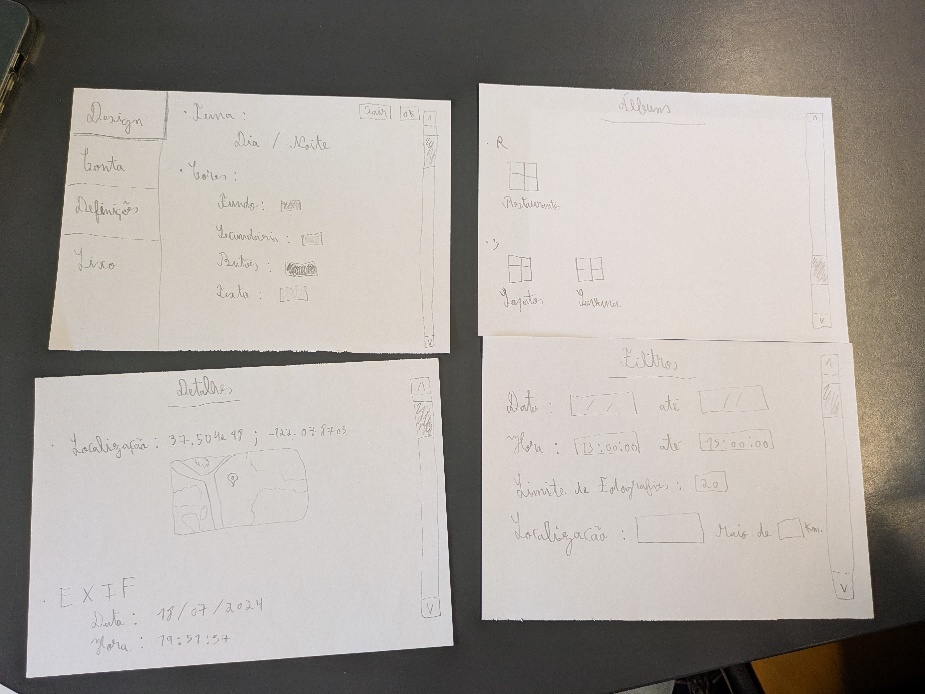 Design
Conta
Definições
Lixo
Sair OK
• Tema:
Dia / Noite
• Cores:
Fundo:
Secundária:
Botões:
Texto:
Álbuns
• R
Restaurante
Detalhes
• Localização: ; -122.078703
• EXIF
Data: 18/07/2024
Hora: 19:51:57
Filtros
Data: / / até / /
Hora: 13:00:00 até 15:00:00
Limite de Fotografias: 20
Localização: Raio de Km.